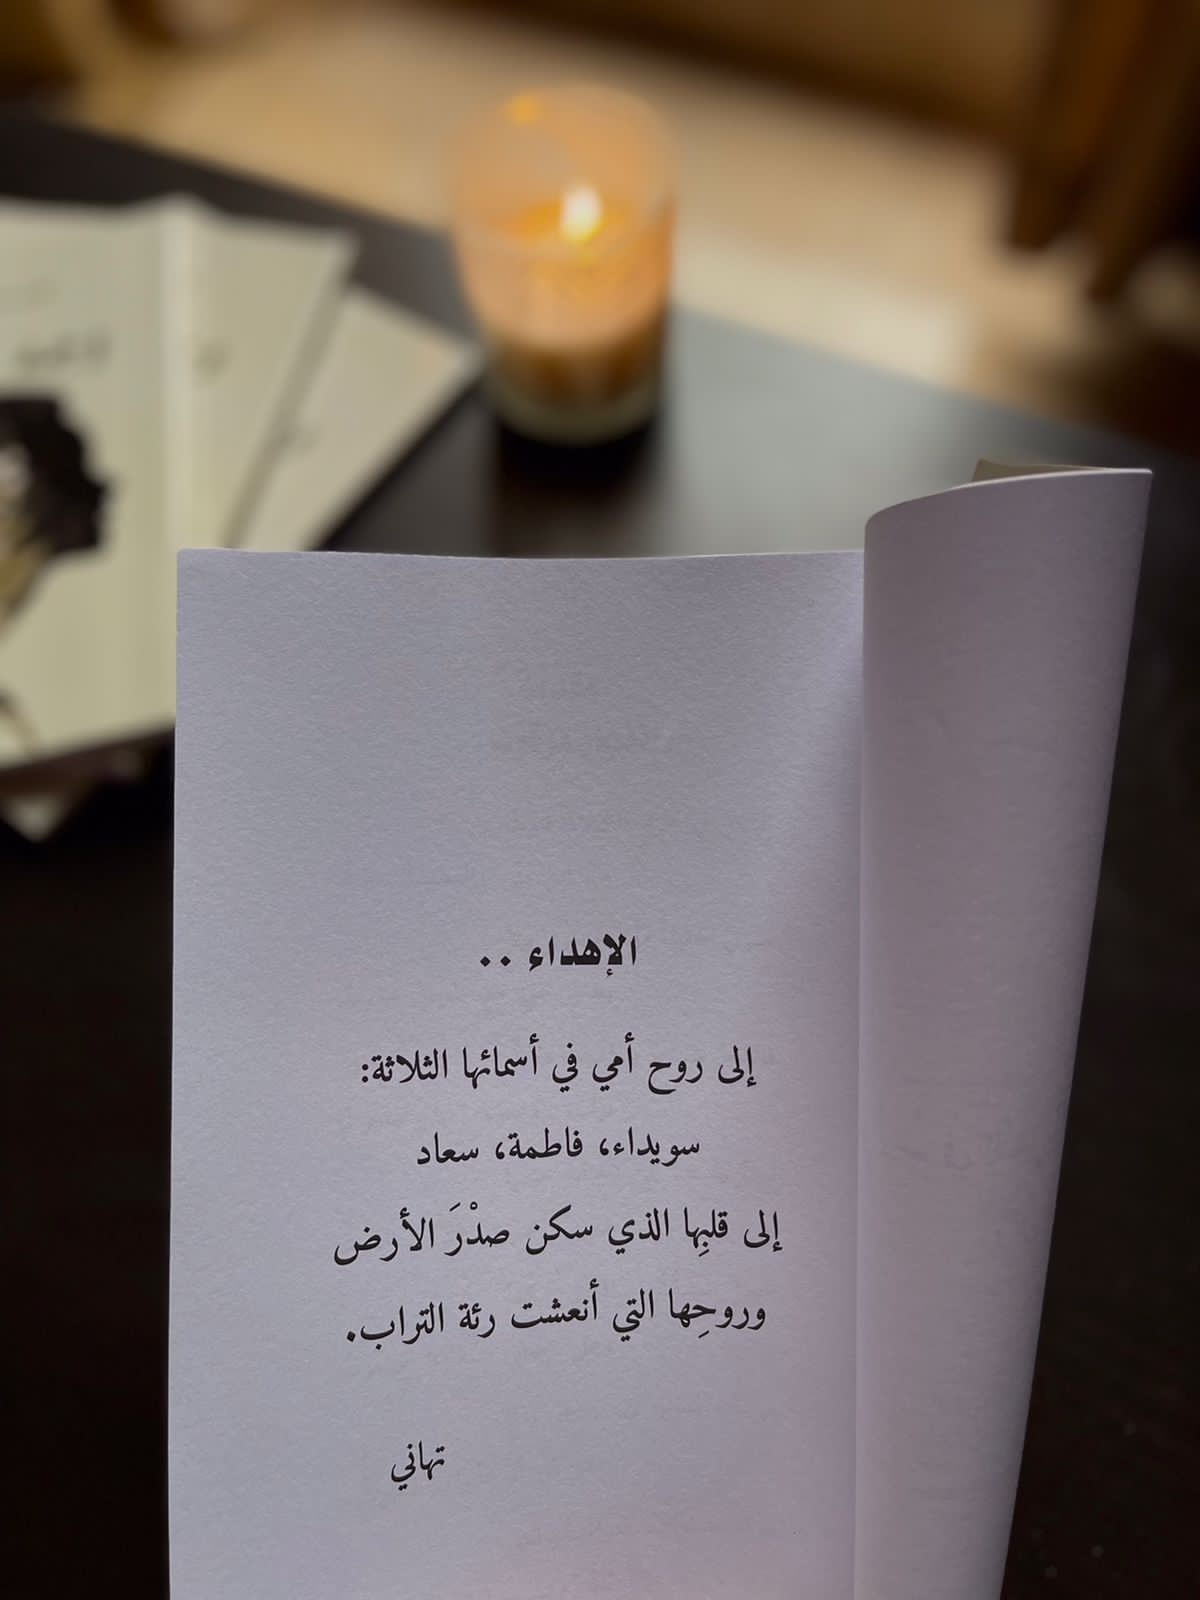 الإهداء ..
إلى روح أمي في أسمائها الثلاثة:
سويداء، فاطمة، سعاد
إلى قلبِها الذي سكن صدْرَ الأرض
وروحِها التي أنعشت رئة التراب.
تهاني